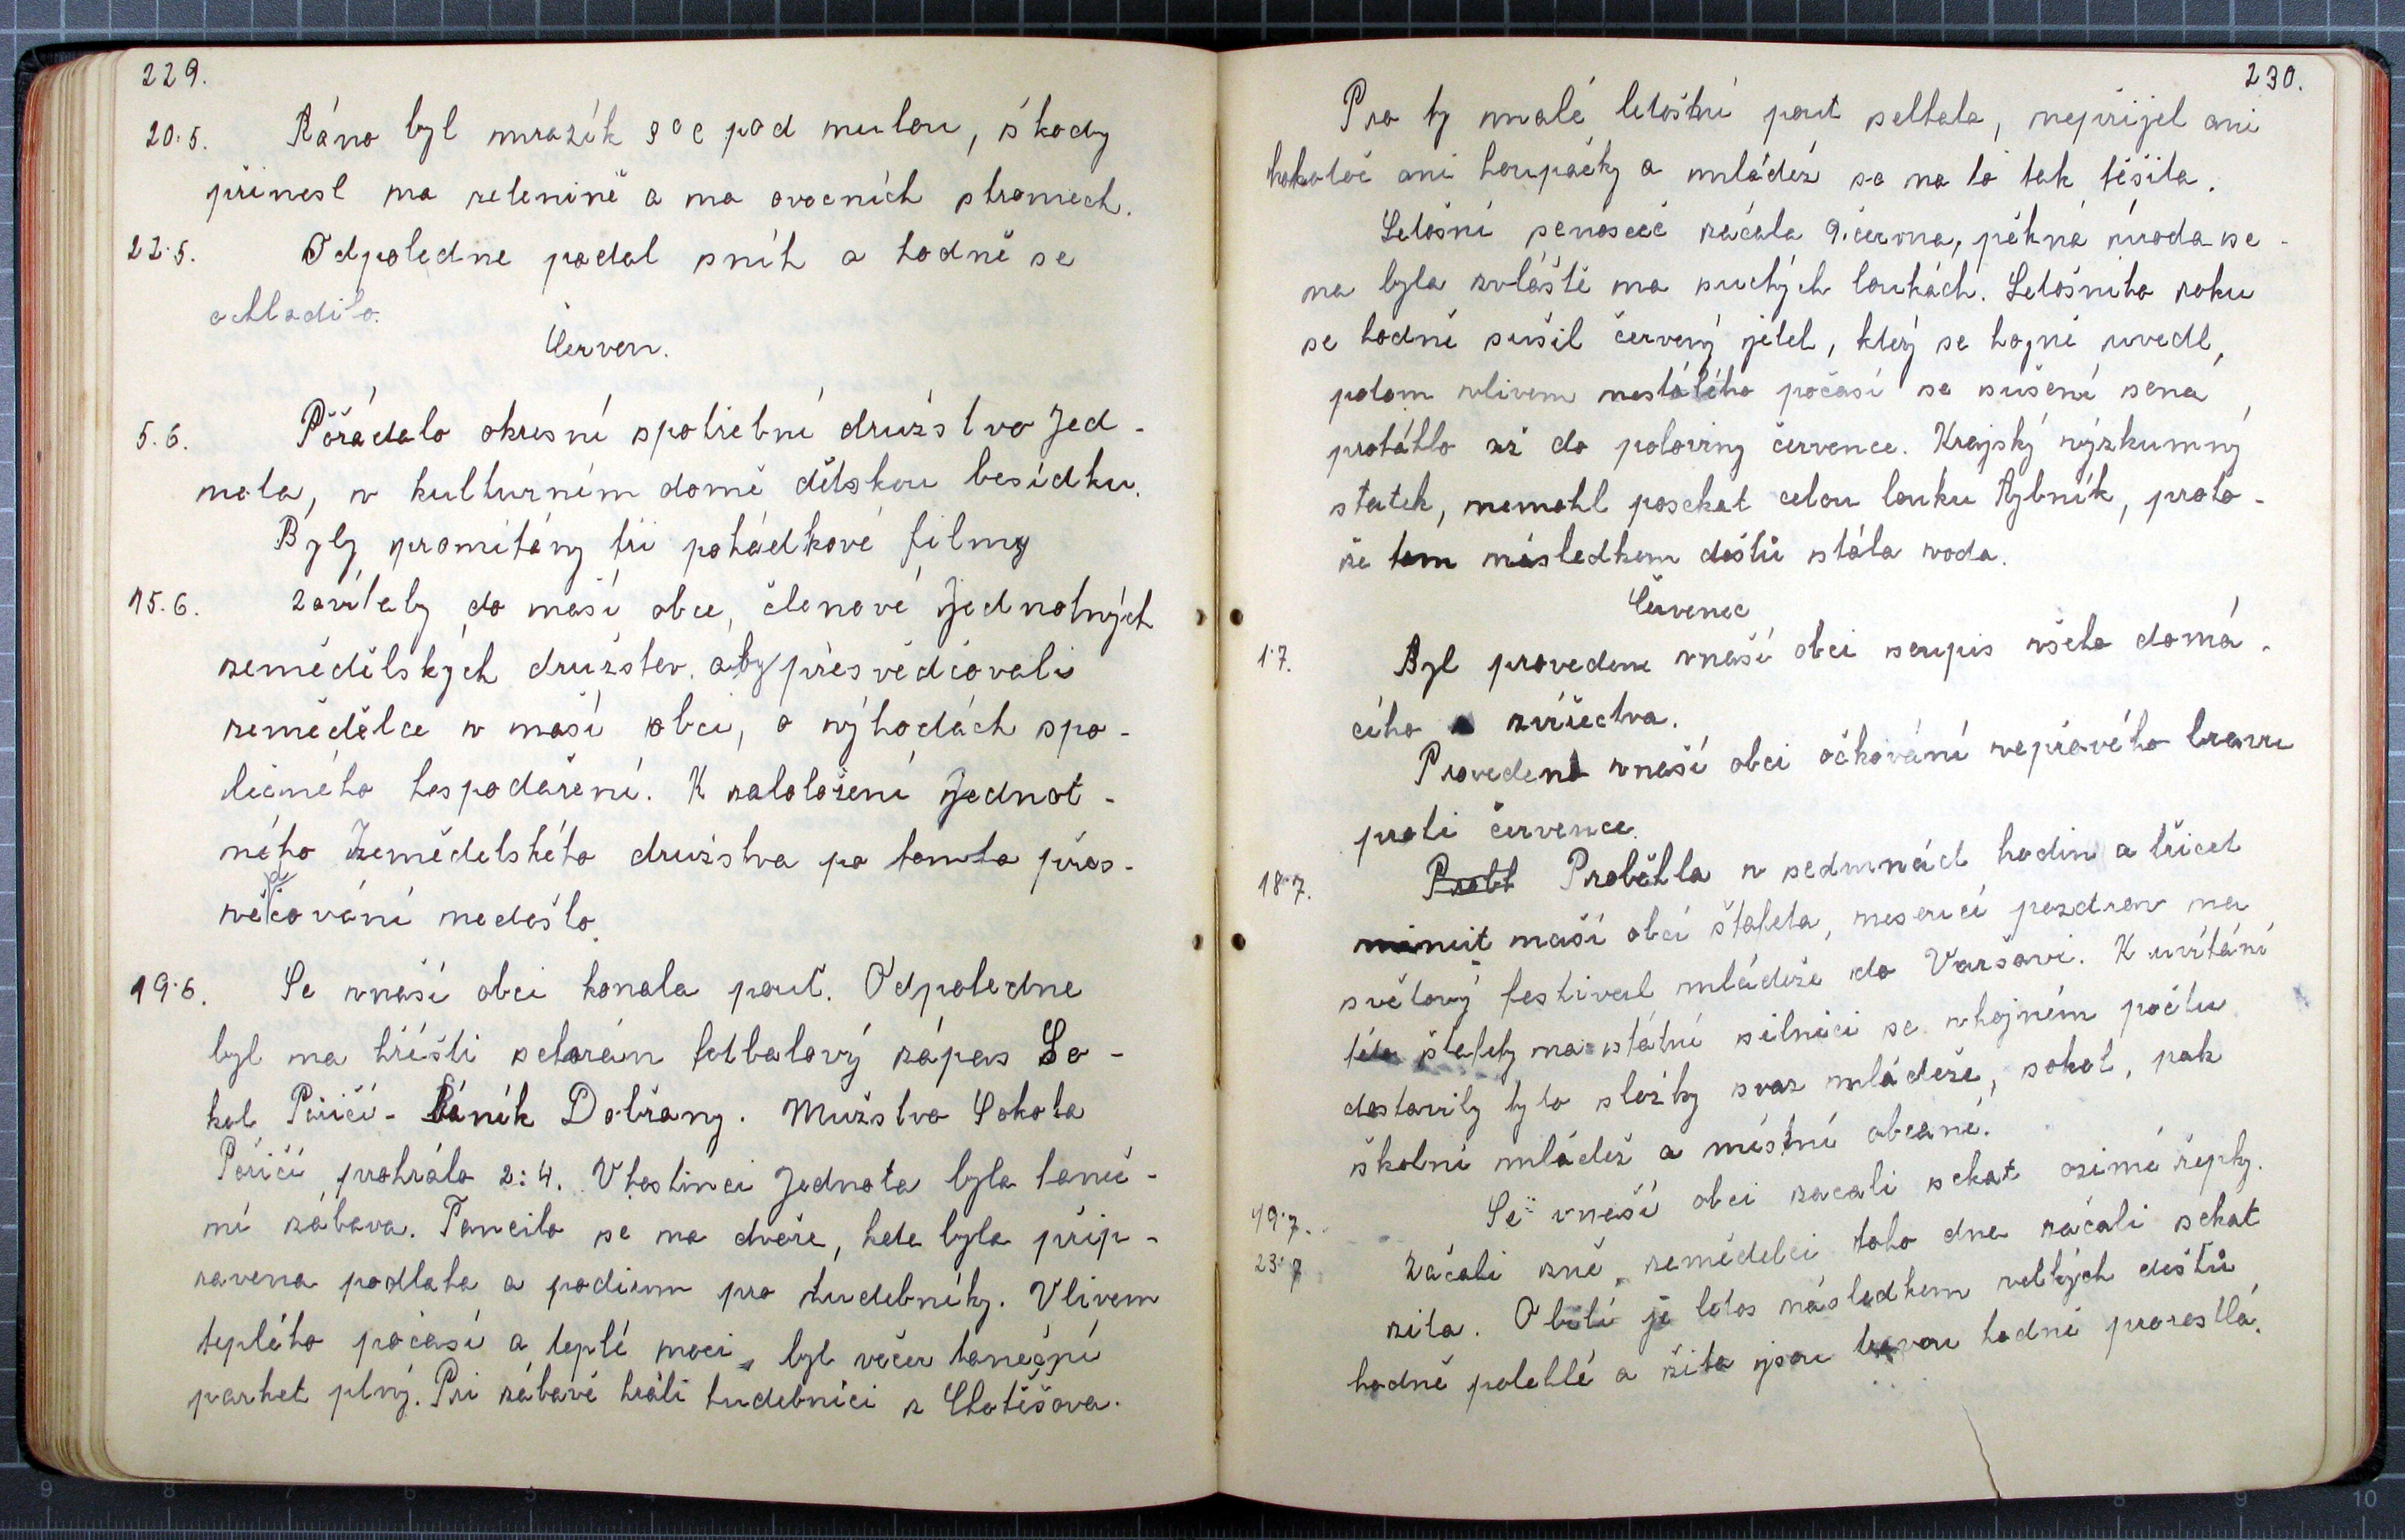 229.
20.5. Ráno byl mrazík 3°C pod nulou, škody
přinesl na zelenině a na ovocních stromech.
22.5. Odpoledne padal sníh a hodně se
ochladilo.
Červen.
5.6. Pořádalo okresní spotřební družstvo Jed-
nota, v kulturním domě dětskou besídku.
Byly promítány tři pohádkové filmy
15.6. Zavítaly do naší obce, členové Jednotných
zemědělských družstev. aby přesvědčovali
zemědělce v naší obci, o výhodách spo-
lečného hospodaření. K zalołožení Jednot-
ného Zemědělského družstva po tomto přes-
vědčování nedošlo.
19.6. Se vnaší obci konala pouť. Odpoledne
byl na hřišti sehrán fotbalový zápas So-
kol Poříčí - Báník Dobřany. Mužstvo Sokola
Poříčí prohrálo 2:4. Vhostinci Jednota byla taneč-
ní zábava. Tancilo se na dvoře, kde byla přip-
ravena podlaha a podium pro hudebníky. Vlivem
teplého počasí a teplé noci, byl večer taneční
parket plný. Při zábavě hráli hudebníci z Chotěšova.
230.
Pro ty malé letošní pouť selhala, nepřijel ani
kolotoč ani houpačky a mládež se na to tak těšila.
Letošní senoseč začala 9. června, pěkná úroda se-
na byla zvláště na suchých loukách. Letošního roku
se hodně sušil červený jetel, který se hojně uvedl,
potom vlivem nestálého počasí se sušení sena
protáhlo až do poloviny července. Krajský výzkumný
statek, nemohl posekat celou louku Rybník, proto-
že tam následkem dešťů stála voda.
Červenec
1.7. Byl proveden vnaší obci soupis všeho domá-
cího zvířectva.
Provedeno vnaší obci očkování vepřového bravu
proti července.
18.7. Probt Proběhla v sedmnáct hodin a třicet
minut naší obcí štafeta, nesoucí pozdrav na
světový festival mládeže do Varšavi. K uvítání
této štafety na státní silnici se vhojném počtu
dostavily tyto složky svaz mládeže, sokol, pak
školní mládež a místní občané.
19.7. Se vnaší obci začali sekat ozimé řepky.
23.7 Začali žně, zemědelci toho dne začali sekat
žita. Obilí je letos následkem velkých dešťů
hodně polehlé a žita jsou travou hodně prorostlá.